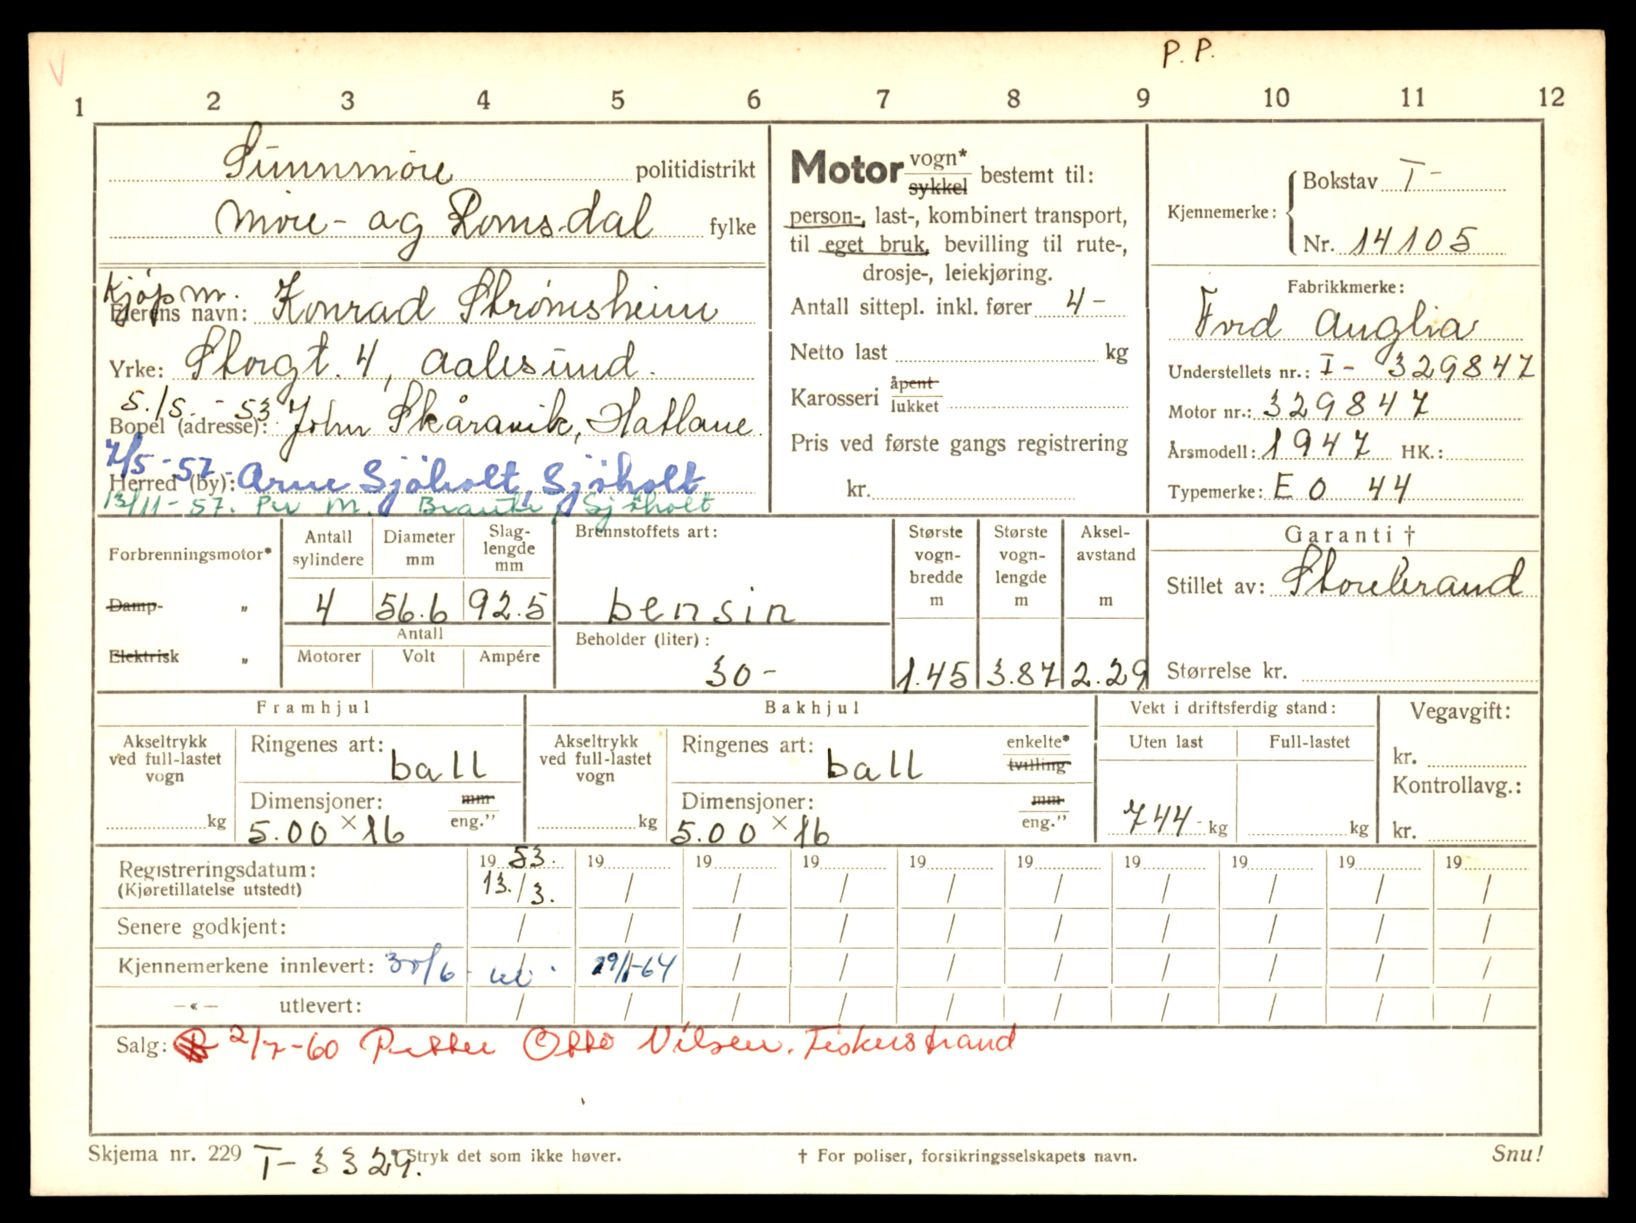 P. P.
V
1 2 3 4 5 6 7 8 9 10 11 12
Sunnmöre politidistrikt
Möre- og Romsdal fylke
Kjøpm.
Eierens navn: Konrad Strømsheim
Yrke: Storgt. 4, Aalesund.
5./5. - 53 John Skåravik, Hatlane
Bopel (adresse):
7/5 - 57 - Arne Sjöholt, Sjöholt
Herred (by):
13/11 - 57. Per M. Sjøholt
Motor vogn* sykkel bestemt til:
person-, last-, kombinert transport,
til eget bruk, bevilling til rute-,
drosje-, leiekjøring.
Antall sittepl. inkl. fører 4 -
Netto last kg
Karosseri åpent lukket
Pris ved første gangs registrering
kr.
Kjennemerke: Bokstav T -
Nr. 14105
Fabrikkmerke:
Ford Anglia
Understellets nr.: I - 329847
Motor nr.: 329847
Årsmodell: 1947 HK.:
Typemerke: E O 44
Forbrenningsmotor*
Damp- „
Elektrisk „
Antall sylindere
Diameter mm
Slaglengde mm
4 56.6 92.5
Antall
Motorer Volt Ampére
Brennstoffets art:
bensin
Beholder (liter):
30 -
Største vogn-bredde m
Største vogn-lengde m
Aksel-avstand m
1.45 3.87 2.29
Garanti †
Stillet av: Storebrand
Størrelse kr.
Framhjul
Akseltrykk ved full-lastet vogn
kg
Ringenes art: ball
Dimensjoner: mm eng."
5.00 × 16
Bakhjul
Akseltrykk ved full-lastet vogn
kg
Ringenes art: ball enkelte* tvilling
Dimensjoner: mm eng."
5.00 × 16
Vekt i driftsferdig stand:
Uten last Full-lastet
744 - kg kg
Vegavgift:
kr.
Kontrollavg.:
kr.
Registreringsdatum: 19 53. 19 19 19 19 19 19 19 19 19
(Kjøretillatelse utstedt) 13./3. / / / / / / / / /
Senere godkjent: / / / / / / / / / /
Kjennemerkene innlevert: 30/6 29/1-64 / / / / / / / /
—«— utlevert: / / / / / / / / / /
Salg: 2/7-60 Petter Otto Nilsen. Fiskerstrand
Skjema nr. 229 T - 3329. * Stryk det som ikke høver. † For poliser, forsikringsselskapets navn. Snu!